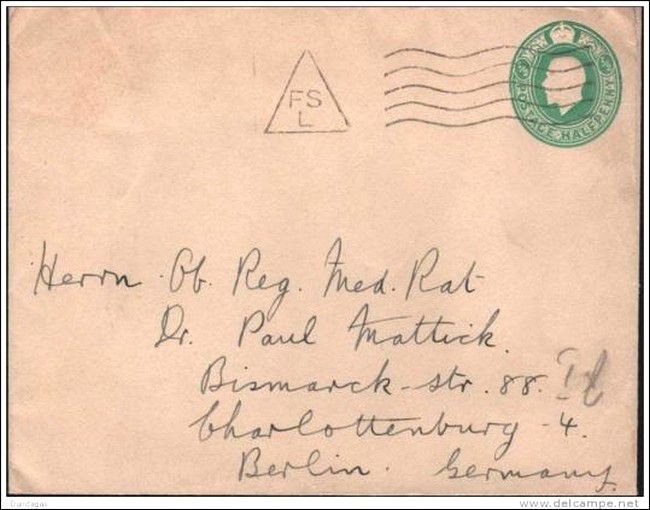 FS
L
POSTAGE HALFPENNY
Herrn Ob. Reg. Med. Rat
Dr. Paul Mattick.
Bismarck-str. 88.
Charlottenburg - 4.
Berlin. Germany
Dundagar
www.delcampe.net